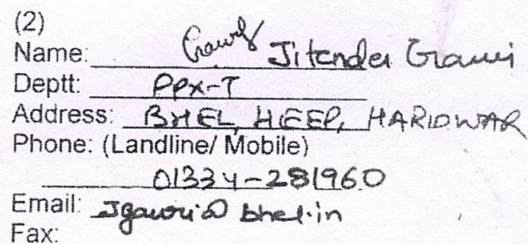 (2)
Name: Jitender Grawi
Deptt: PPX-T
Address: BHEL, HEEP, HARIDWAR
Phone: (Landline/ Mobile)
01334-281960
Email: Jgauri@bhel.in
Fax: